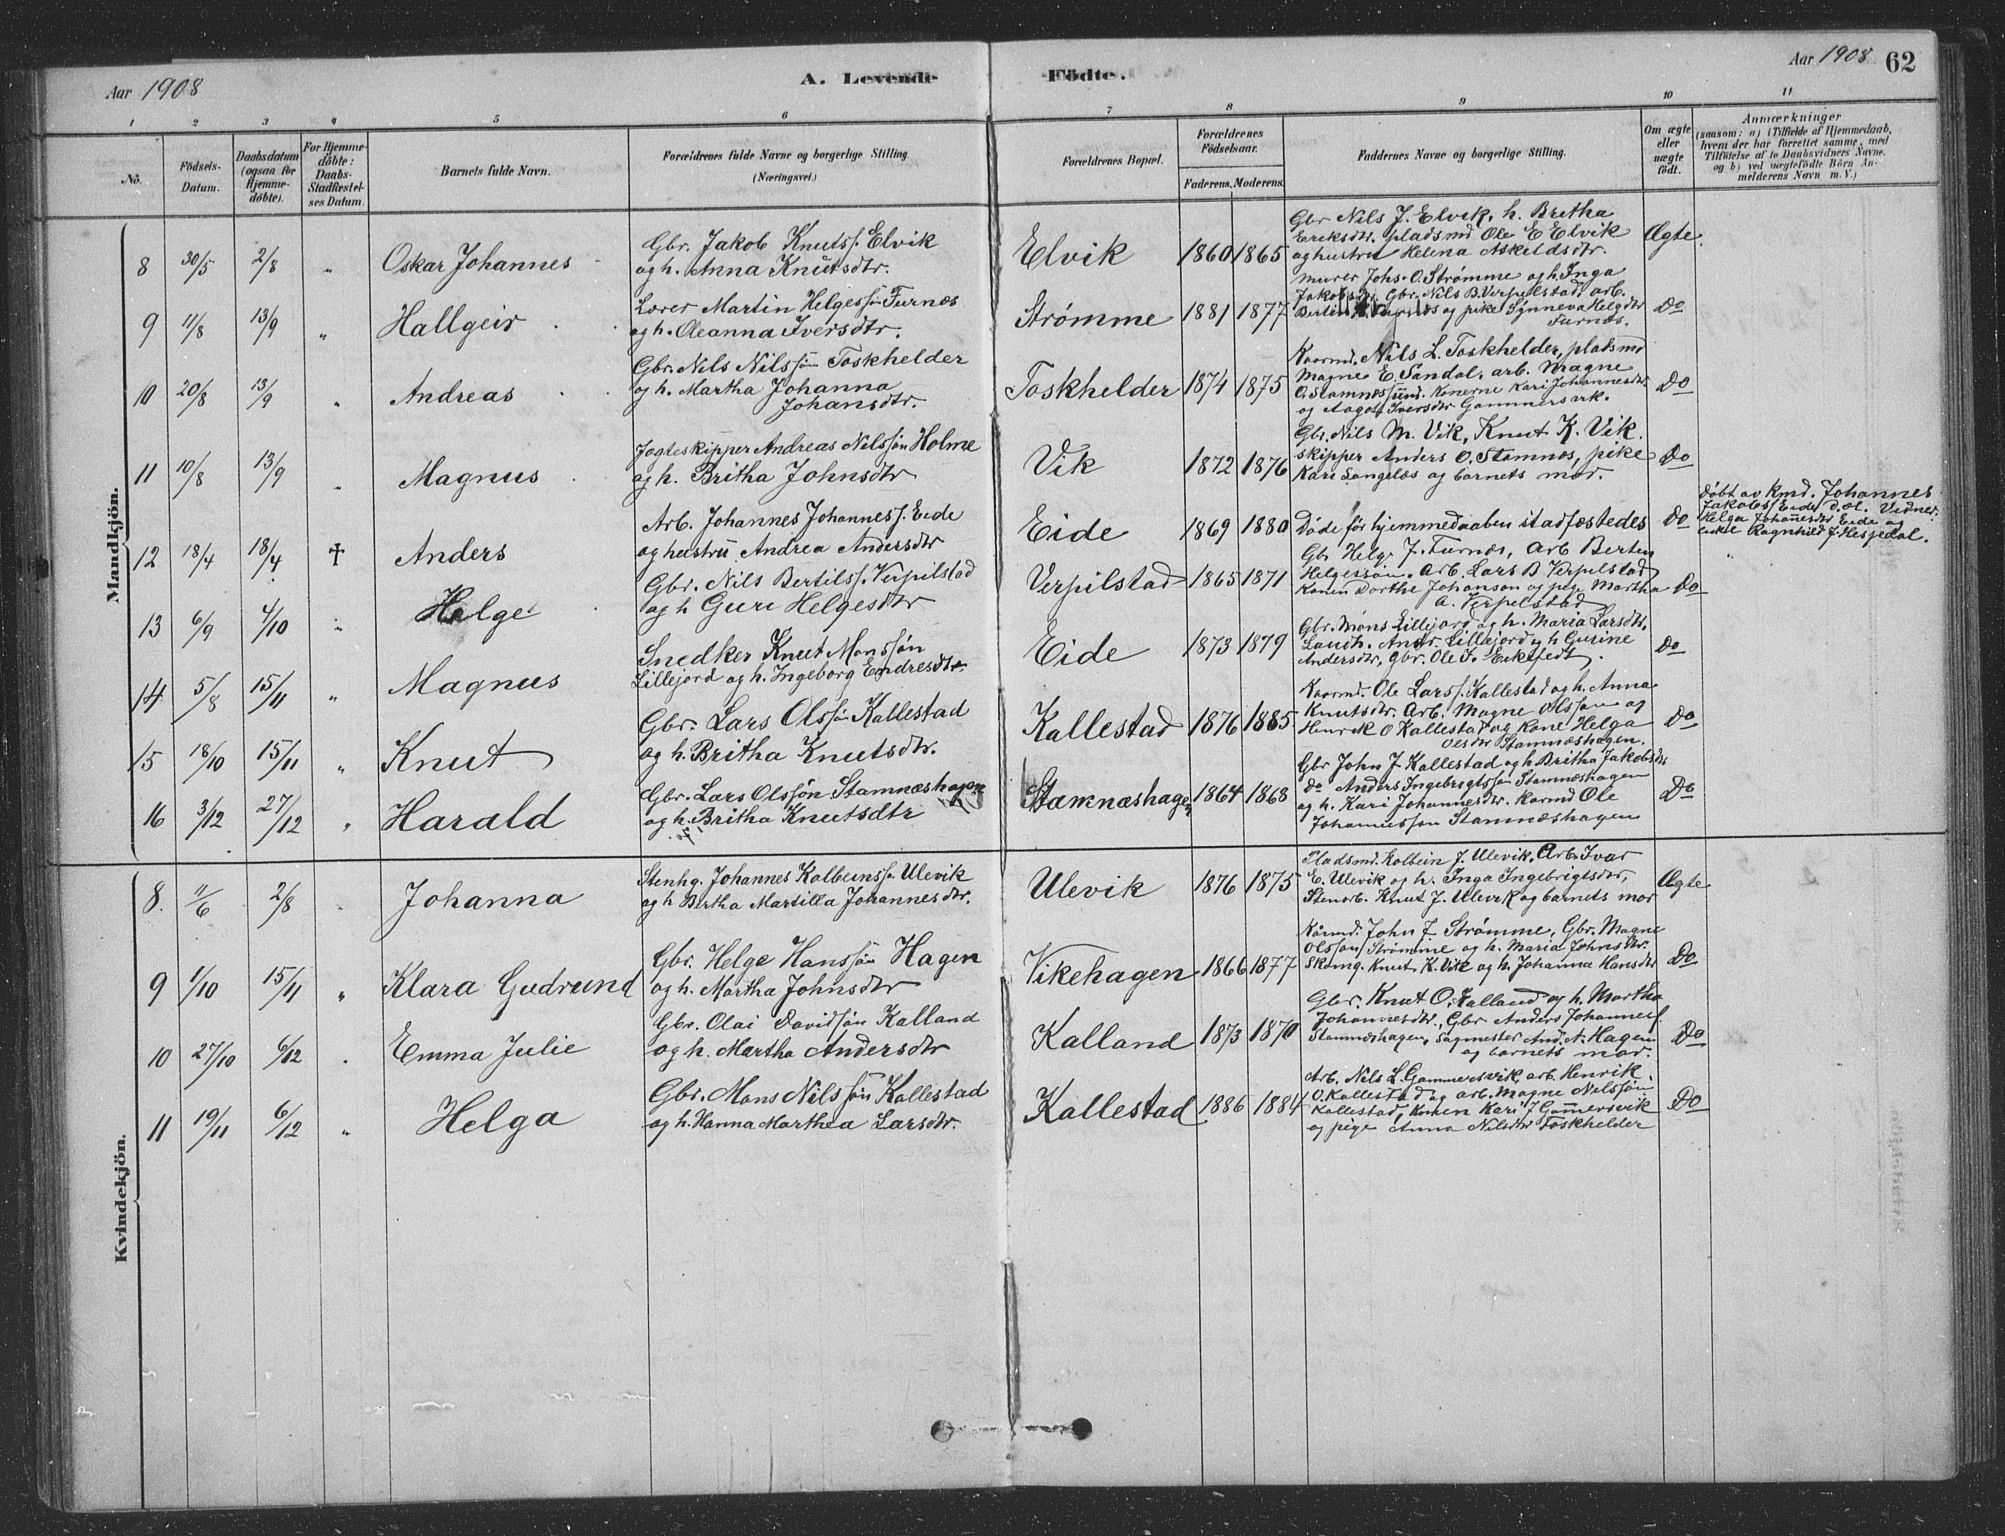 Aar 1908
A. Levende Födte.
Aar 1908 62
1 2 3 4 5 6 7 8 9 10 11
No.
Födsels-Datum.
Daabsdatum (ogsaa for Hjemme-döbte).
For Hjemme-döbte: Daabs-Stadfæstel-ses Datum.
Barnets fulde Navn.
Forældrenes fulde Navne og borgerlige Stilling.
(Næringsvei.)
Forældrenes Bopæl.
Forældrenes Födselsaar.
Faderens. Moderens.
Faddernes Navne og borgerlige Stilling.
Om ægte eller uægte födt.
Anmærkninger
(saasom: a) i Tilfælde af Hjemmedaab,
hvem der har forrettet samme, med
Tilföielse af to Daabsvidners Navne.
og b) ved uægtefödte Börn An-
melderens Navn m. V.)
Mandkjön.
8 30/5 2/8 " Oskar Johannes
Gbr. Jakob Knutss. Elvik
og h. Anna Knutsdtr.
Elvik 1860 1865
Gbr Nils J. Elvik, h. Bretha
Eriksdtr. pladsmd Ole E Elvik
og hustru Helena Askeldsdtr.
Ægte
9 11/8 13/9 " Hallgeir
Lærer Martin Helgessøn Furnes
og h. Oleanna Iversdtr.
Strømme 1881 1877
Murer Johs. O. Strømme og h. Inga
Jakobsdtr. Gbr. Nils B. Verpilstad, arb.
og pike Synneva Helgdtr
Furnæs.
Do
10 20/8 13/9 " Andreas
Gbr. Nils Nilssøn Toskhelder
og h. Martha Johanna
Johansdtr.
Toskhelder 1874 1875
Kaarmd. Nils L. Toskhelder, pladsmd
Magne E Sandal, arb. Magne
O. Stamnessund. Konerne Kari Johannesdtr
og Aagot Iversdtr Gammersvik.
Do
11 10/8 13/9 " Magnus
Jagteskipper Andreas Nilssøn Holme
og h. Britha Johnsdtr
Vik 1872 1876
Gbr. Nils M. Vik, Knut K. Vik.
skipper Anders O. Stamnæs, pike
Kari Langeløs og barnets mor.
Do
12 18/4 18/4 ✝ Anders
Arb. Johannes Johanness. Eide
og hustru Andrea Andersdtr
Eide 1869 1880
Døde før hjemmedaaben stadfæstedes
Do
Døbt av kmd. Johannes
Jakobss Eide d.æ. Vidner:
Helga Johannesdtr Eide og
enke Ragnhild J. Hesjedal.
13 6/9 4/10 " Helge
Gbr. Nils Bertilss. Verpilstad
og h Guri Helgesdtr
Verpilstad 1865 1871
Gbr Helge J. Furnæs, Arb Berten
Helgessøn. Arb. Lars B Verpelstad
Konen Dorthe Johanson og pige Martha
A. Verpelstad
Do
14 5/8 15/11 " Magnus
Snedker Knut Monssøn
Lillejord og h. Ingeborg Endresdtr
Eide 1873 1879
Gbr. Mons Lillejord og h. Maria Larsdtr.
Andr. Lillejord og h Gurine
Andersdtr, Gbr. Ole J.
Do
15 18/10 15/11 " Knut
Gbr. Lars Olssøn Kallestad
og h. Britha Knutsdtr.
Kallestad 1876 1885
Kaarmd. Ole Larss. Kallestad og h. Anna
Knutsdtr. Arb. Magne Olsson og
Henrik O Kallestad og Kone Helga
Olsdtr Stamnæshagen.
Do
16 3/12 27/12 " Harald
Gbr. Lars Olssøn Stamnæshagen
og h. Britha Knutsdtr
Stamnæshagen 1864 1868
Gbr John J Kallestad og h Britha Jakobsdtr
do Anders Ingebrigtssøn Stamnæshagen
og h. Kari Johannesdtr. kaarmd Ole
Johannesson Stamnæshagen
Do
Kvindekjön.
8. 11/6 2/8 Johanna
Stenhg. Johannes Kolbeinss. Ulevik
og h Bertha Martilla Johannesdtr.
Ulevik 1876 1875
Pladsmd. Kolbein J. Ulevik, Arb. Ivar
E. Ulevik og h. Inga Ingebrigtsdtr,
Stenarb. Knut J. Ulevik og barnets mor
Ægte
9 1/10 15/11 " Klara Gudrund
Gbr. Helge Hanssøn Hagen
og h. Martha Johnsdtr
Vikehagen 1866 1877
Kårmd. John J Strømme, Gbr. Magne
Olsson Strømme og h. Maria Johnsdtr.
Skomg. Knut K. Vik og h. Johanna Hansdtr
Do
10 27/10 6/12 " Emma Julie
Gbr. Olai Davidsøn Kalland
og h. Martha Andersdtr
Kalland 1873 1870
Gbr. Knut O. Kalland og h. Martha
Johannesdtr., Gbr Anders Johanness
Stamnæshagen, Sagmester And. N. Hagen
og barnets mor.
Do
11 19/11 6/12 " Helga
Gbr. Mons Nilssøn Kallestad
og h. Hanna Marthea Larsdtr.
Kallestad 1886 1884
Arb. Nils L. Gammersvik, arb. Henrik
O. Kallestad og arb. Magne Nilssøn
Kallestad, Konen Kari J Gammersvik
og pige Anna Nilsdtr Toskhelder
Do